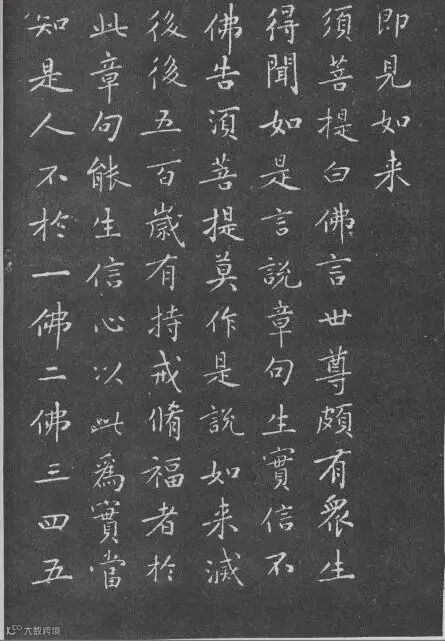 即見如来
須菩提白佛言世尊頗有衆生
得聞如是言說章句生實信不
佛告須菩提莫作是說如来滅
後後五百歲有持戒脩福者於
此章句能生信心以此為實當
知是人不於一佛二佛三四五
大数跨境